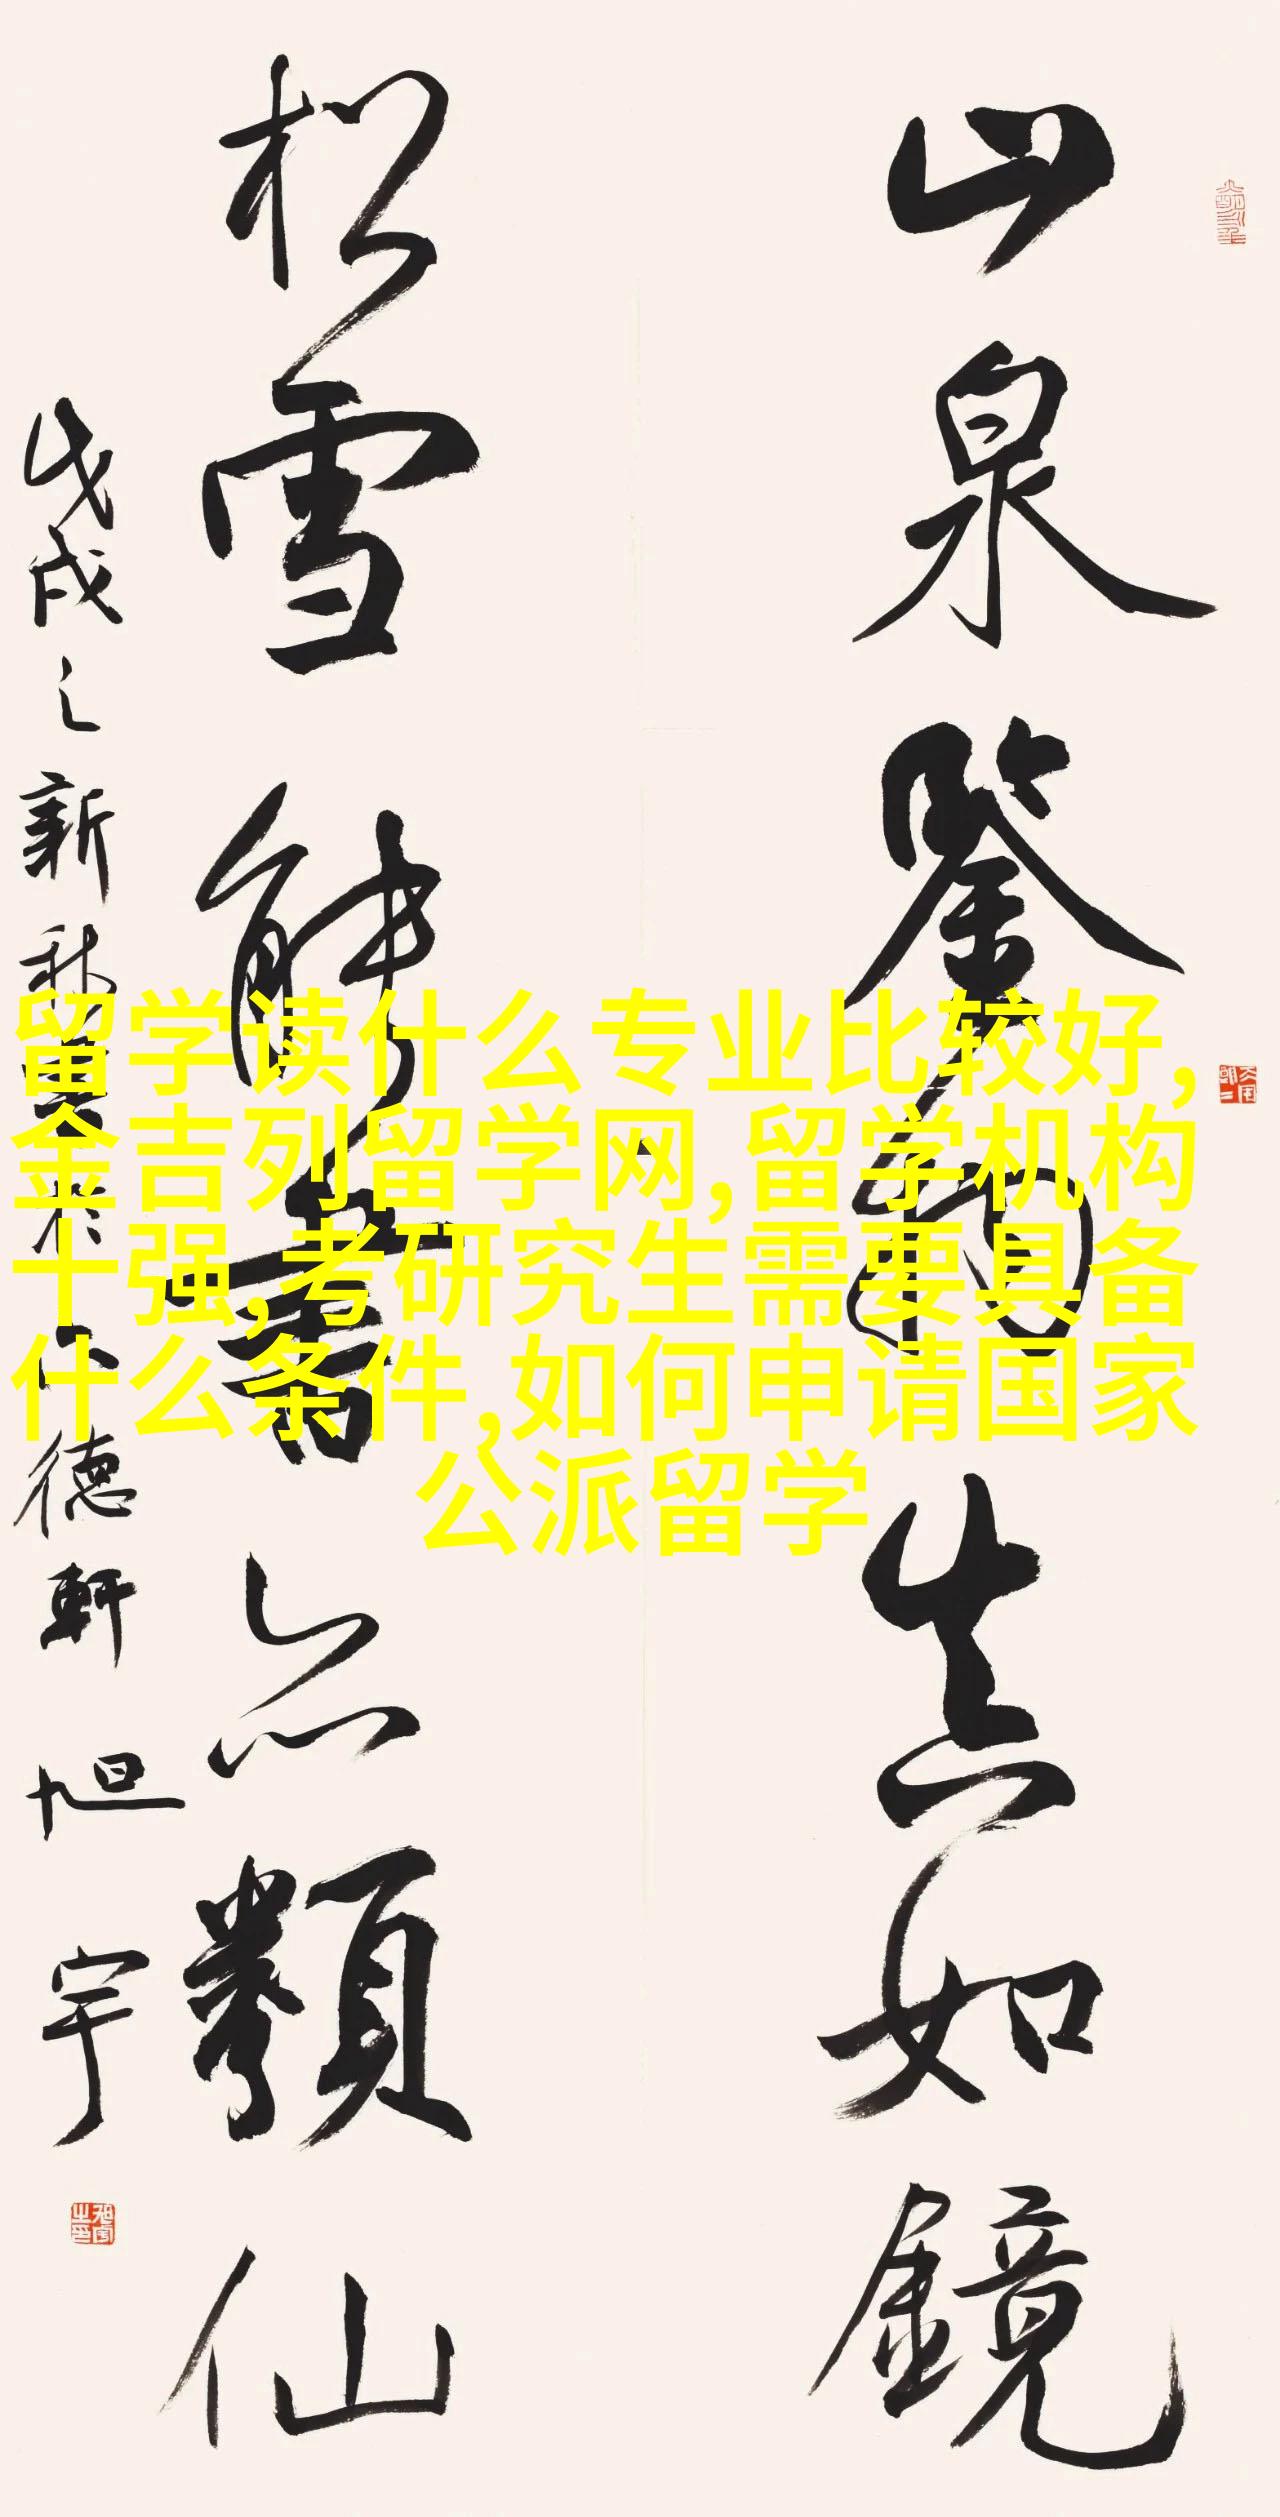 山泉鑒絢真如鏡
松雪融膏亦類仙
戊戌之新秋
德軒
旭宇
留学读什么 专业比较好,
金吉列留学网,留学机构
十强,考研究生需要具备
什么条件,如何申请国家
公派留学